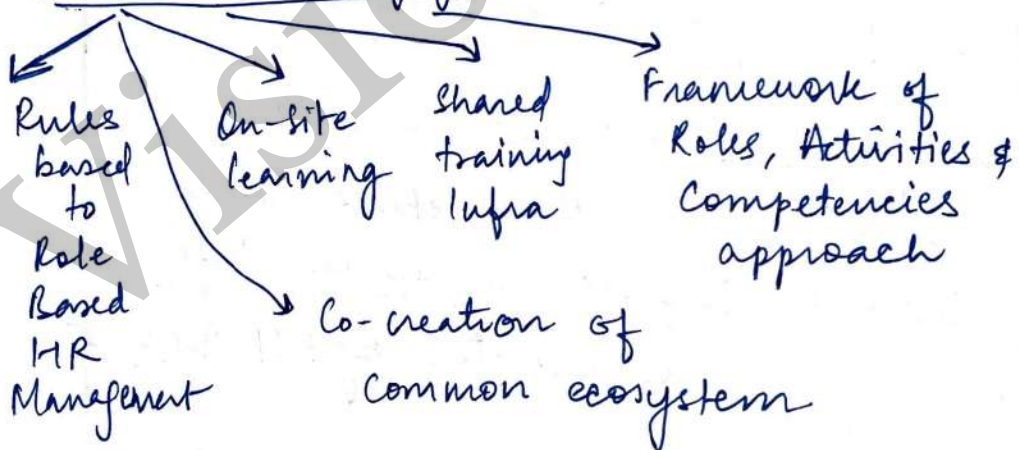 Rules
based
to
Role
Based
HR
Management
On-site
learning
Shared
training
Infra
Framework of
Roles, Activities &
Competencies
approach
Co-creation of
Common ecosystem